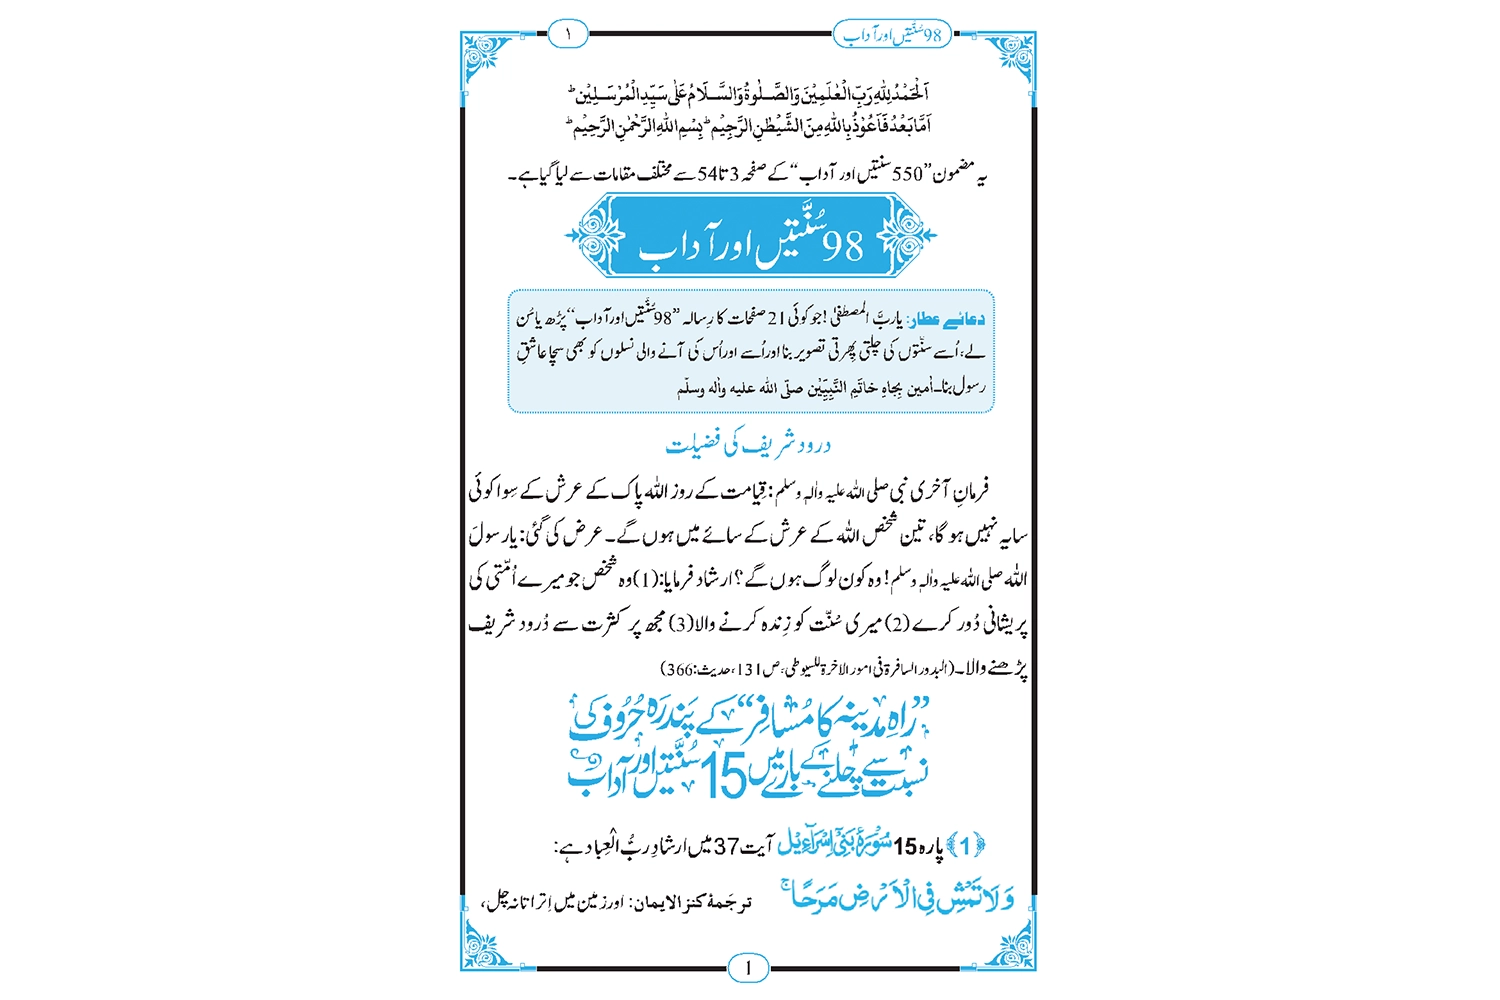 98 سُنّتیں اور آداب
۱
اَلْحَمْدُ لِلّٰهِ رَبِّ الْعٰلَمِیْنَ وَالصَّلٰوةُ وَالسَّلَامُ عَلٰی سَیِّدِ الْمُرْسَلِیْنَ ؕ
اَمَّا بَعْدُ فَاَعُوْذُ بِاللهِ مِنَ الشَّیْطٰنِ الرَّجِیْمِ ؕ بِسْمِ اللهِ الرَّحْمٰنِ الرَّحِیْمِ ؕ
یہ مضمون ”550 سنتیں اور آداب“ کے صفحہ 3 تا 54 سے مختلف مقامات سے لیا گیا ہے۔
98 سُنَّتیں اور آداب
دعائے عطار: یا ربَّ المصطفٰی! جو کوئی 21 صفحات کا رِسالہ ”98 سُنَّتیں اور آداب“ پڑھ یا سُن
لے، اُسے سنّتوں کی چلتی پھرتی تصویر بنا اور اُسے اور اُس کی آنے والی نسلوں کو بھی سچا عاشقِ
رسول بنا۔ اٰمین بِجاہِ خاتَمِ النَّبِیِّیْن صلّی اللہ علیہ واٰلہ وسلّم
درود شریف کی فضیلت
فرمانِ آخری نبی صلی اللہ علیہ واٰلہٖ وسلم: قِیامت کے روز اللہ پاک کے عرش کے سِوا کوئی
سایہ نہیں ہو گا، تین شخص اللہ کے عرش کے سائے میں ہوں گے۔ عرض کی گئی: یارسولَ
اللہ صلی اللہ علیہ واٰلہٖ وسلم! وہ کون لوگ ہوں گے؟ ارشاد فرمایا: (1) وہ شخص جو میرے اُمّتی کی
پریشانی دُور کرے (2) میری سُنّت کو زِندہ کرنے والا (3) مجھ پر کثرت سے دُرود شریف
پڑھنے والا۔ (البدور السافرۃ فی امور الاخرۃ للسیوطی، ص 131، حدیث: 366)
”راہِ مدینہ کا مُسافِر“ کے پَندرَہ حُرُوف کی
نسبت سے چلنے کے بارے میں 15 سُنَّتیں اور آداب
﴿1﴾ پارہ 15 سُوْرَۂ بَنِیْ اِسْرَآءِیْل آیت 37 میں ارشادِ ربُّ الْعِباد ہے:
وَلَا تَمْشِ فِی الْاَرْضِ مَرَحًا ۚ ترجَمۂ کنز الایمان: اور زمین میں اِتراتا نہ چل،
1